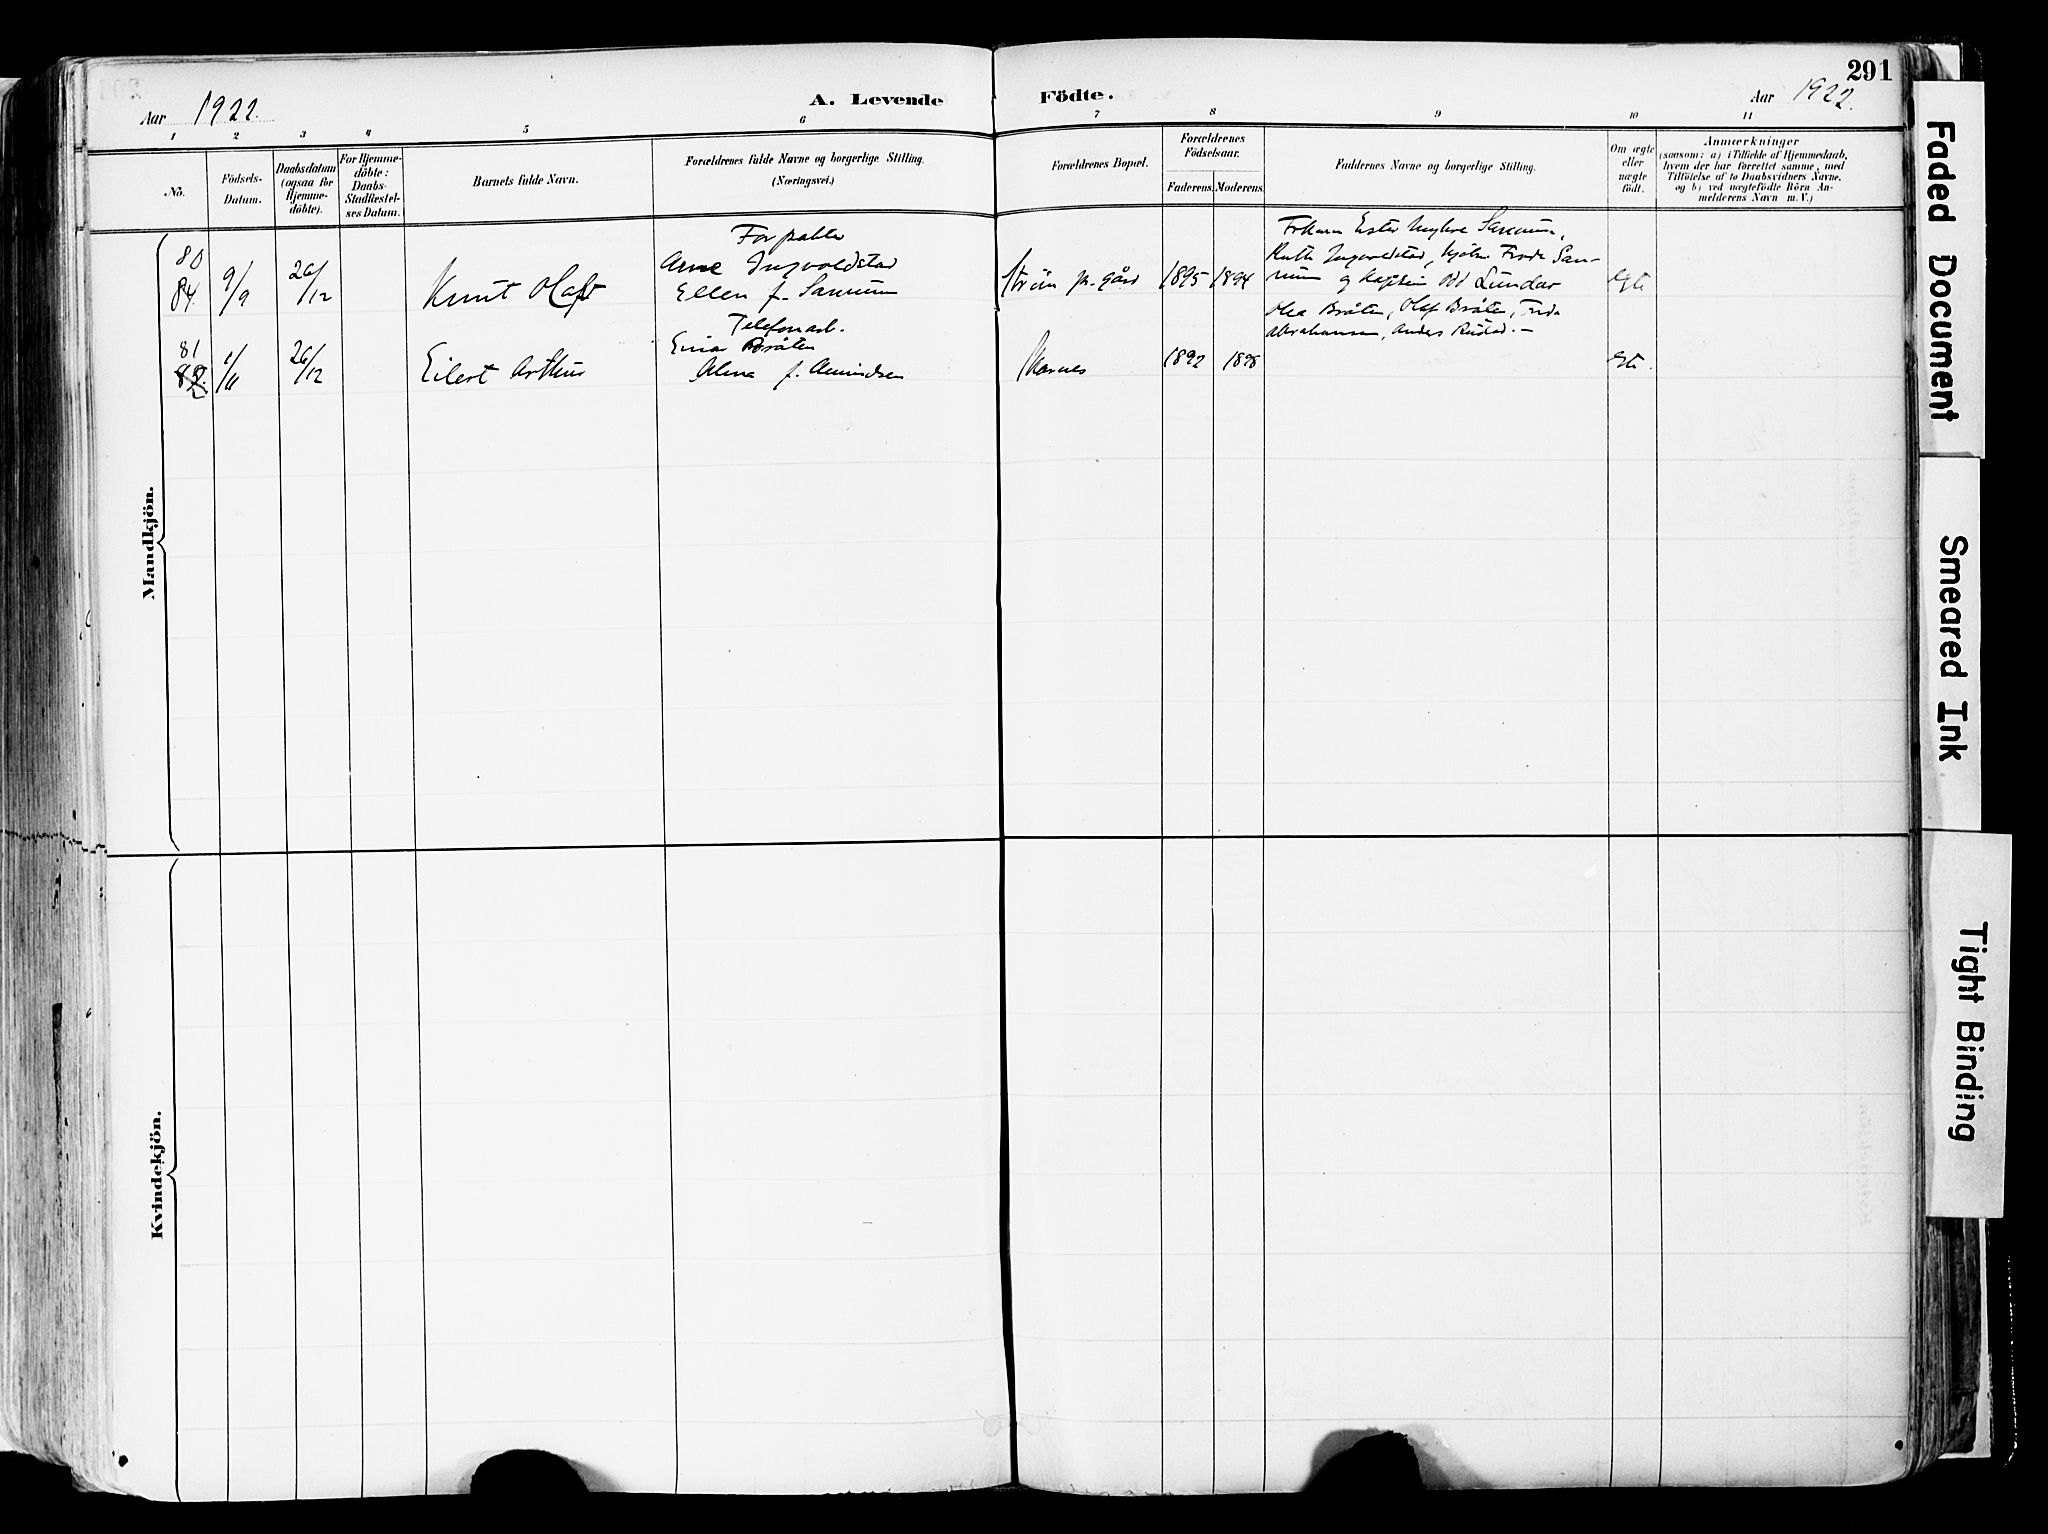 291
Aar 1922.
A. Levende Födte.
Aar 1922.
1 2 3 4 5 6 7 8 9 10 11
No.
Födsels-
Datum.
Daabsdatum
(ogsaa for
Hjemme-
döbte).
For Hjemme-
döbte:
Daabs-
Stadfæstel-
ses Datum.
Barnets fulde Navn.
Forældrenes fulde Navne og borgerlige Stilling.
(Næringsvei.)
Forældrenes Bopæl.
Forældrenes
Födselsaar.
Faderens. Moderens.
Faddernes Navne og borgerlige Stilling.
Om ægte
eller
uægte
født.
Anmærkninger
(saasom: a) i Tilfælde af Hjemmedaab,
hvem der har forrettet samme, med
Tilföielse af to Daabsvidners Navne,
og b) ved uægtefödte Börn An-
melderens Navn m. V.)
Mandkjön.
80
84.
9/9
26/12
Knut Olaf
Forpakter
Arne Ingvoldstad
Ellen f. Sannum
Ström pr.gård
1895 1894
Sannum,
Ruth Ingvoldstad, Frode San-
num og Kaptein Odd Lundar
Egte
81
82.
1/11
26/12
Eilert Arthur
Telefonarb.
Einar Bråten
Alma f. Amundsen
Skarnes
1892 1898
Olea Bråten, Olaf Bråten, Frida
Abrahamsen, Anders Rustad. –
Egte.
Kvindekjön.
Faded Document
Smeared Ink
Tight Binding